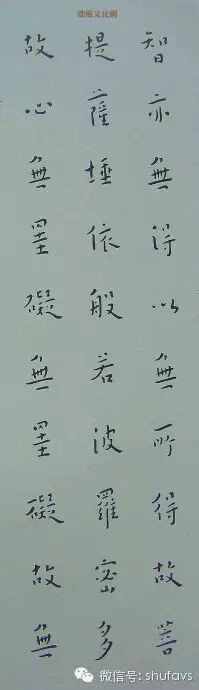 智亦無得以無所得故菩
提薩埵依般若波羅密多
故心無罣礙無罣礙故無
文化網
微信号: shufavs